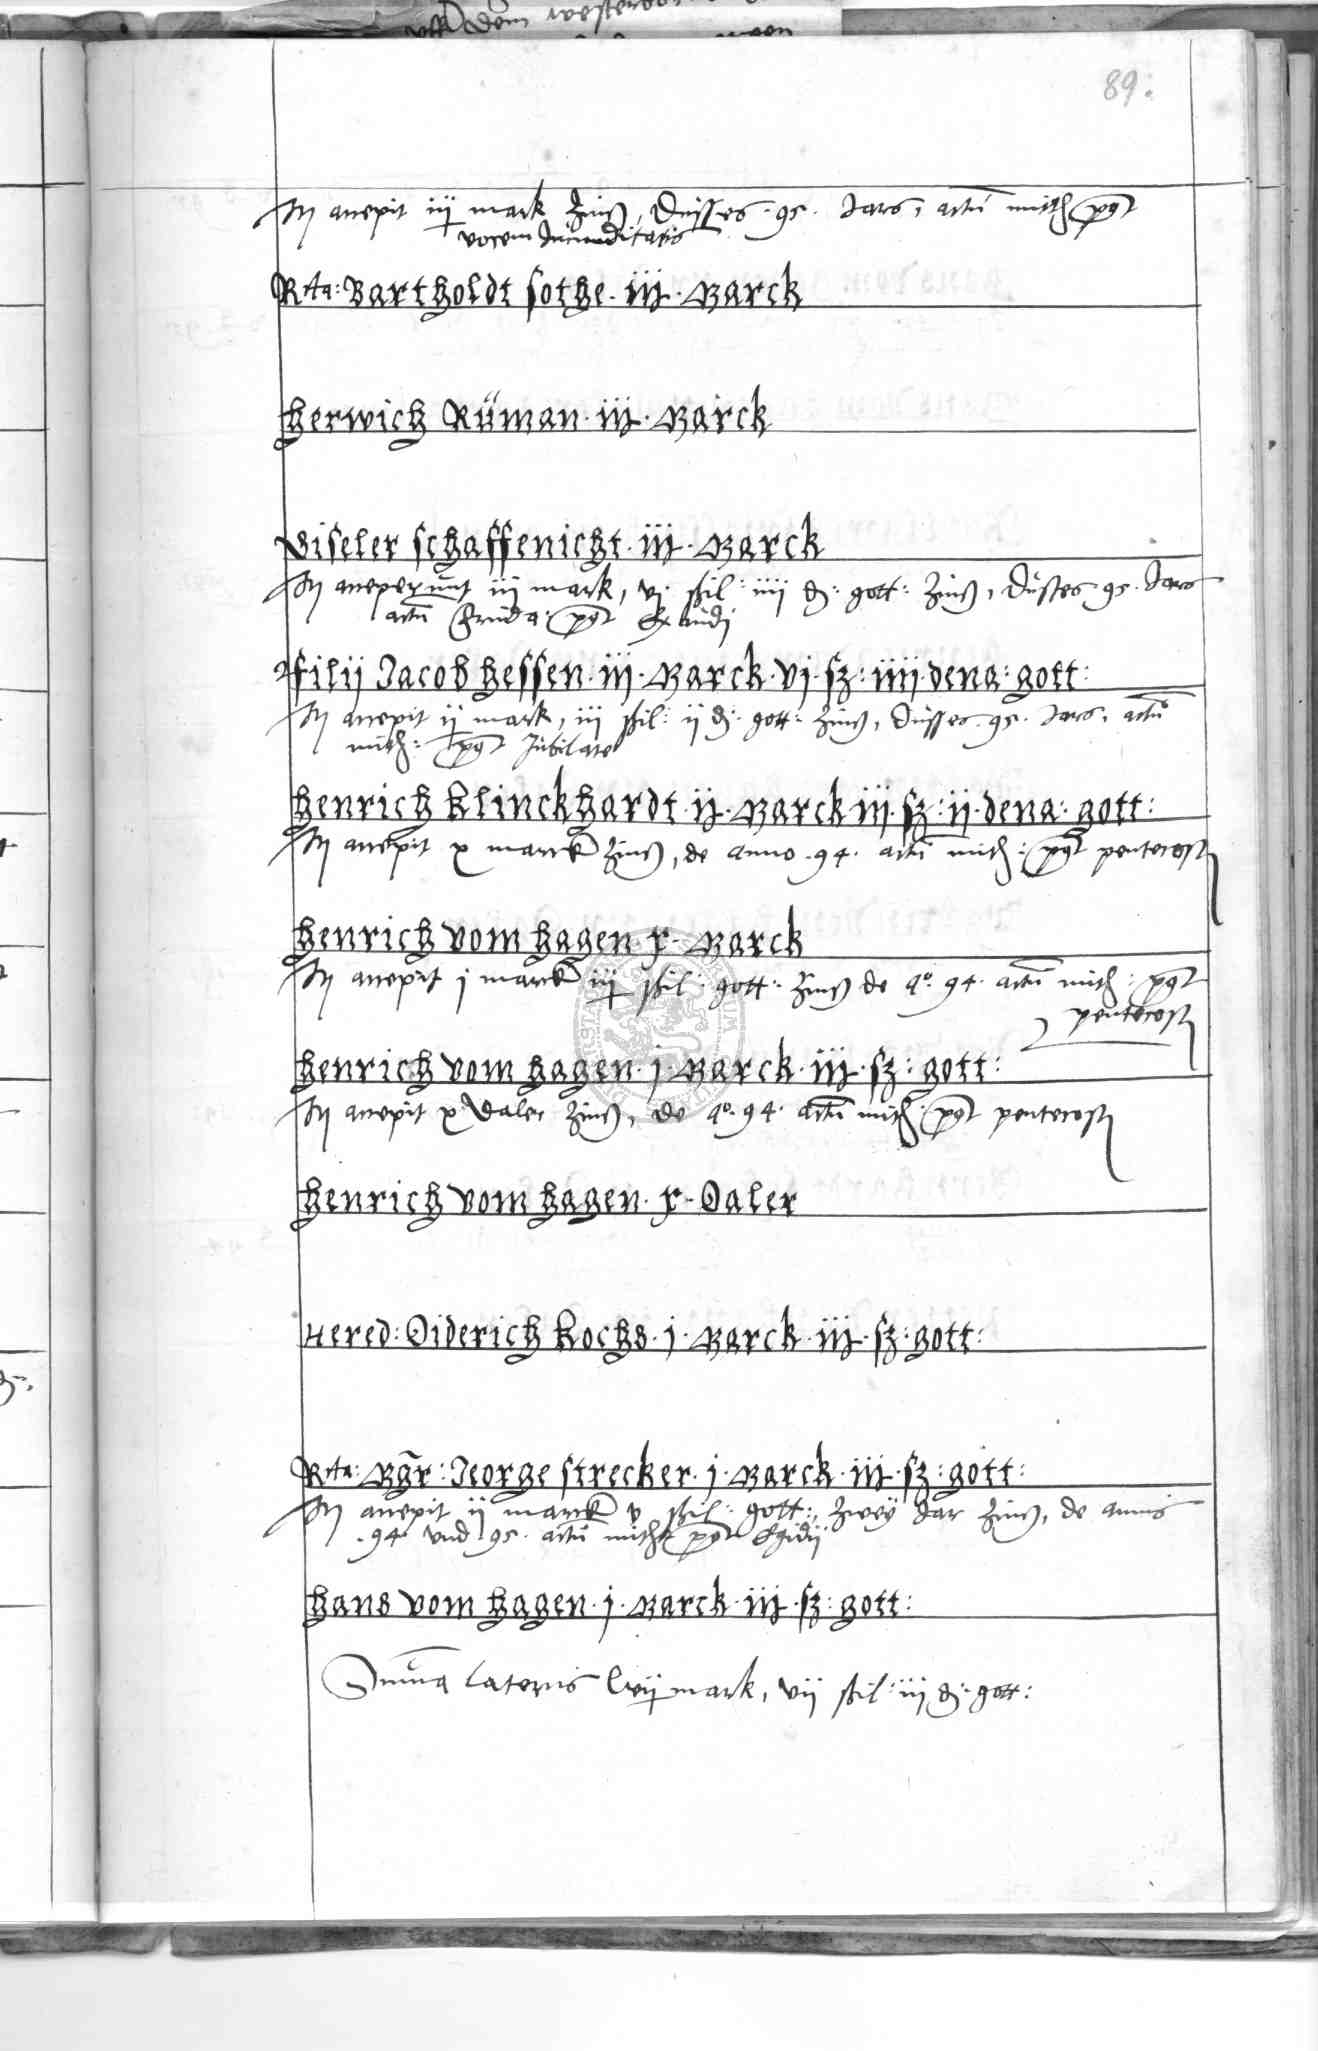 uff dem
89:
accepit iij mark Zinß, Dusses .95. Jars, actũ mith pgt
vocem Jucunditatis
Rta: Bartholdt sothe . iij . Marck
Herwich Rüman . iij . Marck
Giseler schaffenicht . iij . Marck
acceperunt iij mark, vj schil: iiii d: gott: Zinß, Dusses 95. Jars
actũ pgt Exaudi
filij Jacob Hessen . iij . Marck . vj . sz: iiij . dena: gott:
accepit ij mark, iij schil: ij d: gott: Zinß, Dusses .95. Jars, actũ
mith: pgt Jubilate
Henrich Klinckhardt . ij . Marck iij . sz: ij . dena: gott:
accepit x marck Zinß, de anno .94. actũ mith: pgt pentecost
Henrich vom Hagen . x . Marck
accepit j marck iij schil: gott: Zinß de ao. 94. actũ mith: pgt
pentecost
Henrich vom Hagen . j . Marck . iij . sz: gott:
accepit x Daler Zinß, de ao. 94. actũ mith: pgt pentecost
Henrich vom Hagen . x . Daler
Hered: Diderich Kochs . j . Marck . iij . sz: gott:
Rta: Mgr: Jeorge strecker . j . Marck . iij . sz: gott:
accepit ij marck v schil: gott:, Zwey Jar Zinß, de annis
.94. und .95. actũ pgt Egidij
Hans vom Hagen . j . Marck . iij . sz: gott:
Suma lateris mark, vij schil: iij d: gott: